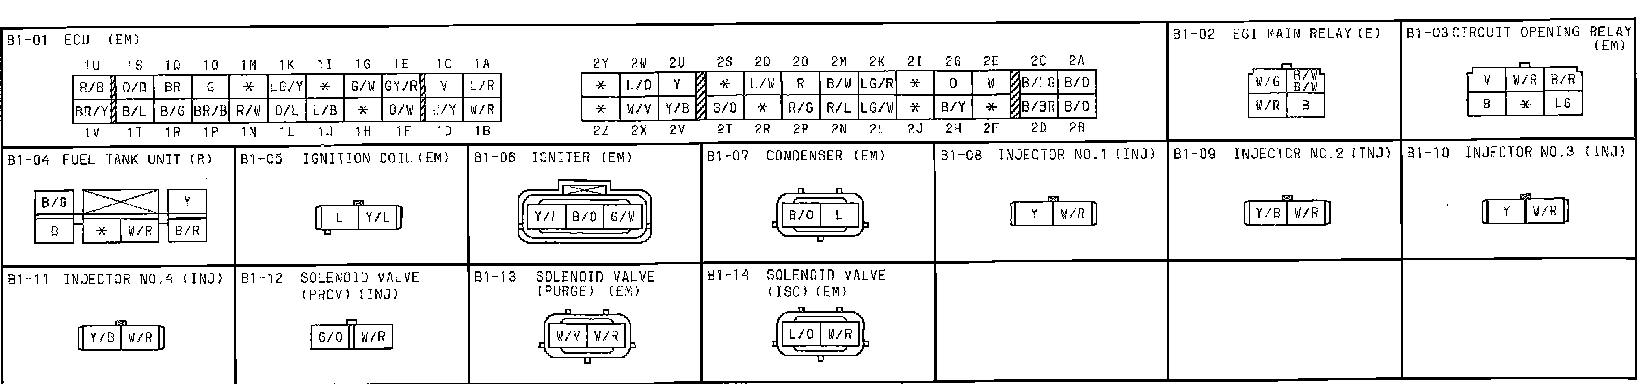 B1-01 ECU (EM)
1U 1S 1Q 1O 1M 1K 1I 1G 1E 1C 1A
R/B O/B BR G * LG/Y * G/W GY/R V L/R
BR/Y B/L B/G BR/B R/W O/L L/B * O/W L/Y W/R
1V 1T 1R 1P 1N 1L 1J 1H 1F 1D 1B
2Y 2W 2U 2S 2Q 2O 2M 2K 2I 2G 2E 2C 2A
* L/O Y * L/W R B/W LG/R * O W B/LG B/O
* W/V Y/B G/O * R/G R/L LG/W * B/Y * B/BR B/O
2Z 2X 2V 2T 2R 2P 2N 2L 2J 2H 2F 2D 2B
B1-02 EGI MAIN RELAY (E)
W/G B/W
B/W
W/R B
B1-03 CIRCUIT OPENING RELAY
(EM)
V W/R B/R
B * LG
B1-04 FUEL TANK UNIT (R)
B/G Y
B * W/R B/R
B1-05 IGNITION COIL (EM)
L Y/L
B1-06 IGNITER (EM)
Y/L B/O G/W
B1-07 CONDENSER (EM)
B/O L
B1-08 INJECTOR NO.1 (INJ)
Y W/R
B1-09 INJECTOR NO.2 (INJ)
Y/B W/R
B1-10 INJECTOR NO.3 (INJ)
Y W/R
B1-11 INJECTOR NO.4 (INJ)
Y/B W/R
B1-12 SOLENOID VALVE
(PRCV) (INJ)
G/O W/R
B1-13 SOLENOID VALVE
(PURGE) (EM)
W/V W/R
B1-14 SOLENOID VALVE
(ISC) (EM)
L/O W/R